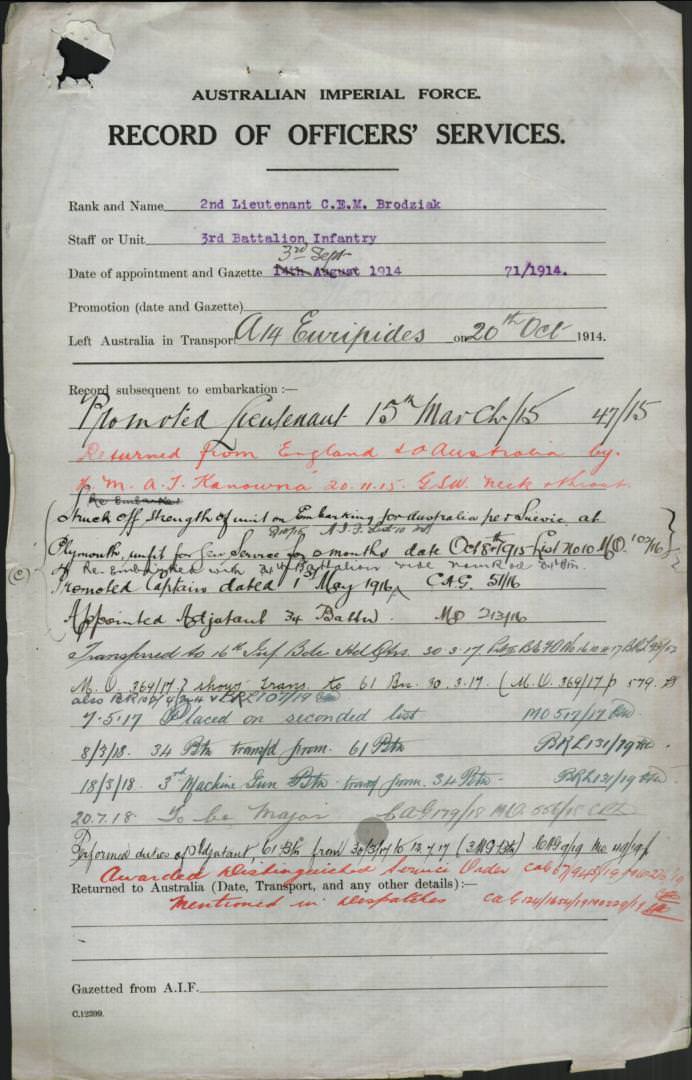 AUSTRALIAN IMPERIAL FORCE.
RECORD OF OFFICERS' SERVICES.
Rank and Name 2nd Lieutenant C.E.M. Brodziak
Staff or Unit 3rd Battalion Infantry
3rd Sept
Date of appointment and Gazette 14th August 1914 71/1914.
Promotion (date and Gazette)
Left Australia in Transport A14 Euripides on 20th Oct 1914.
Record subsequent to embarkation:—
Promoted Lieutenant 15th March/15 47/15
Returned from England to Australia by
"Kanowna" 20.11.15. G.S.W. Neck & throat
Re Embarked
Struck off strength of unit on Embarking for Australia per Suevic at
Plymouth, unfit for Service for months date Oct 8th 1915 List No 10 M.O. 107/16
Re-Embarked with 34th Battalion vide
Promoted Captain dated 1st May 1916 C.A.G. 51/16
(c)
Appointed Adjutant 34 Battn. MO 213/16
Transferred to 16th Inf Bde Hd Qtrs. 30.3.17
M.O. 369/17 shows trans. to 61 Bn. 30.3.17. (M.O. 369/17 p 579.
also BRL 107/19
7.5.17 Placed on seconded list MO 517/17
8/3/18. 34 Btn transfd from. 61 Btn BRL 131/19
18/3/18. 3rd Machine Gun Btn transf from. 34 Btn. BRL 131/19
20.7.18. To be Major CAG 179/18 M.O.
Performed duties of Adjutant 61 Bn from 30/3/17 to 12.7.17 (3 MG Btn)
Awarded Distinguished Service Order
Returned to Australia (Date, Transport, and any other details):—
Mentioned in Despatches
Gazetted from A.I.F.
C.12399.